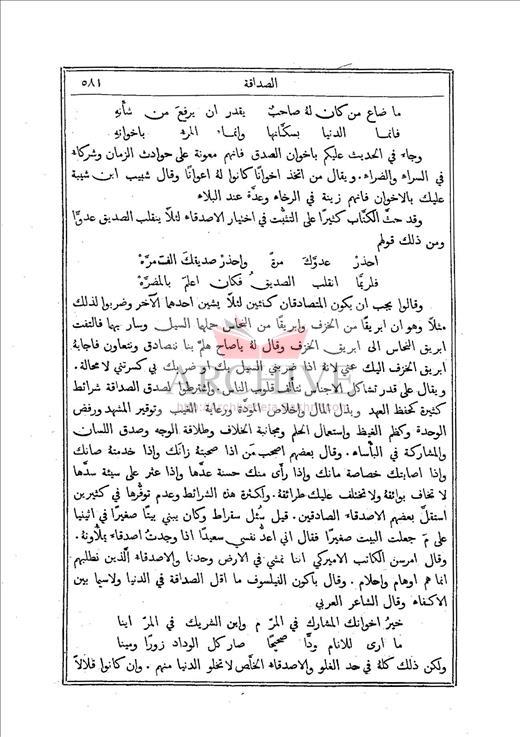 الصداقة ٥٨١
ما ضاع من كان لهُ صاحبٌ يقدر ان يرفعَ من شأنهِ
فانما الدنيا بسكّانها وانما المرءُ باخوانهِ
وجاء في الحديث عليكم باخوان الصدق فانهم معونة على حوادث الزمان وشركاء
في السراء والضراء. ويقال من اتخذ اخوانًا كانوا لهُ اعوانًا وقال شبيب ابن شيبة
عليك بالاخوان فانهم زينة في الرخاء وعدَّة عند البلاء
وقد حثَّ الكتّاب كثيرًا على التثبُّت في اختيار الاصدقاء لئلاَّ ينقلب الصديق عدوًّا
ومن ذلك قولهم
احذرْ عدوَّك مرةً واحذرْ صديقكَ الف مرَّهْ
فلربَّما انقلب الصديقُ فكان اعلمَ بالمضرَّهْ
وقالوا يجب ان يكون المتصادقان كفئين لئلاَّ يشين احدهما الآخر وضربوا لذلك
مثلًا وهو ان ابريقًا من الخزف وابريقًا من النحاس حملها السيل وسار بها فالتفت
ابريق النحاس الى ابريق الخزف وقال لهُ ياصاح هلمَّ بنا نتصادق ونتعاون فاجابهُ
ابريق الخزف اليك عني لانهُ اذا ضربني السيل بك او ضربك بي كسرتني لا محالة.
ويقال على قدر تشاكل الاجناس تتألف قلوب الناس واشترطوا لصدق الصداقة شرائط
كثيرة كحفظ العهد وبذل المال واخلاص المودَّة ورعاية الغيب وتوقير المشهد ورفض
الوحدة وكظم الغيظ واستعال الحلم ومجانبة الخلاف وطلاقة الوجه وصدق اللسان
والمشاركة في البأساء. وقال بعضهم اصحب مَن اذا صحبتهُ زانك واذا خدمتهُ صانك
واذا اصابتك خصاصة مانك واذا رأى منك حسنة عدَّها واذا عثر على سيئة سدَّها
لا تخاف بوائقهُ ولا تختلف عليك طرائقهُ. ولكثرة هذه الشرائط وعدم توفُّرها في كثيرين
استقلَّ بعضهم الاصدقاء الصادقين. قيل سُئل سقراط وكان يبني بيتًا صغيرًا في اثينيا
على مَ جعلت البيت صغيرًا فقال اني اعدُّ نفسي سعيدًا اذا وجدتُ اصدقاء يملأُونهُ.
وقال امرسن الكاتب الاميركي اننا نمشي في الارض وحدنا والاصدقاء الَّذين نطلبهم
انما هم اوهام واحلام. وقال باكون الفيلسوف ما اقل الصداقة في الدنيا ولاسيما بين
الاكفاء وقال الشاعر العربي
خيرُ اخوانك المشارك في المرّ م واين الشريك في المرّ اينا
ما ارى للانام ودًّا صحيحًا صار كل الوداد زورًا ومينا
ولكن ذلك كلهُ في حد الغلو والاصدقاء الخلَّص لا تخلو الدنيا منهم. وان كانوا قلالًا
ARCHIVE